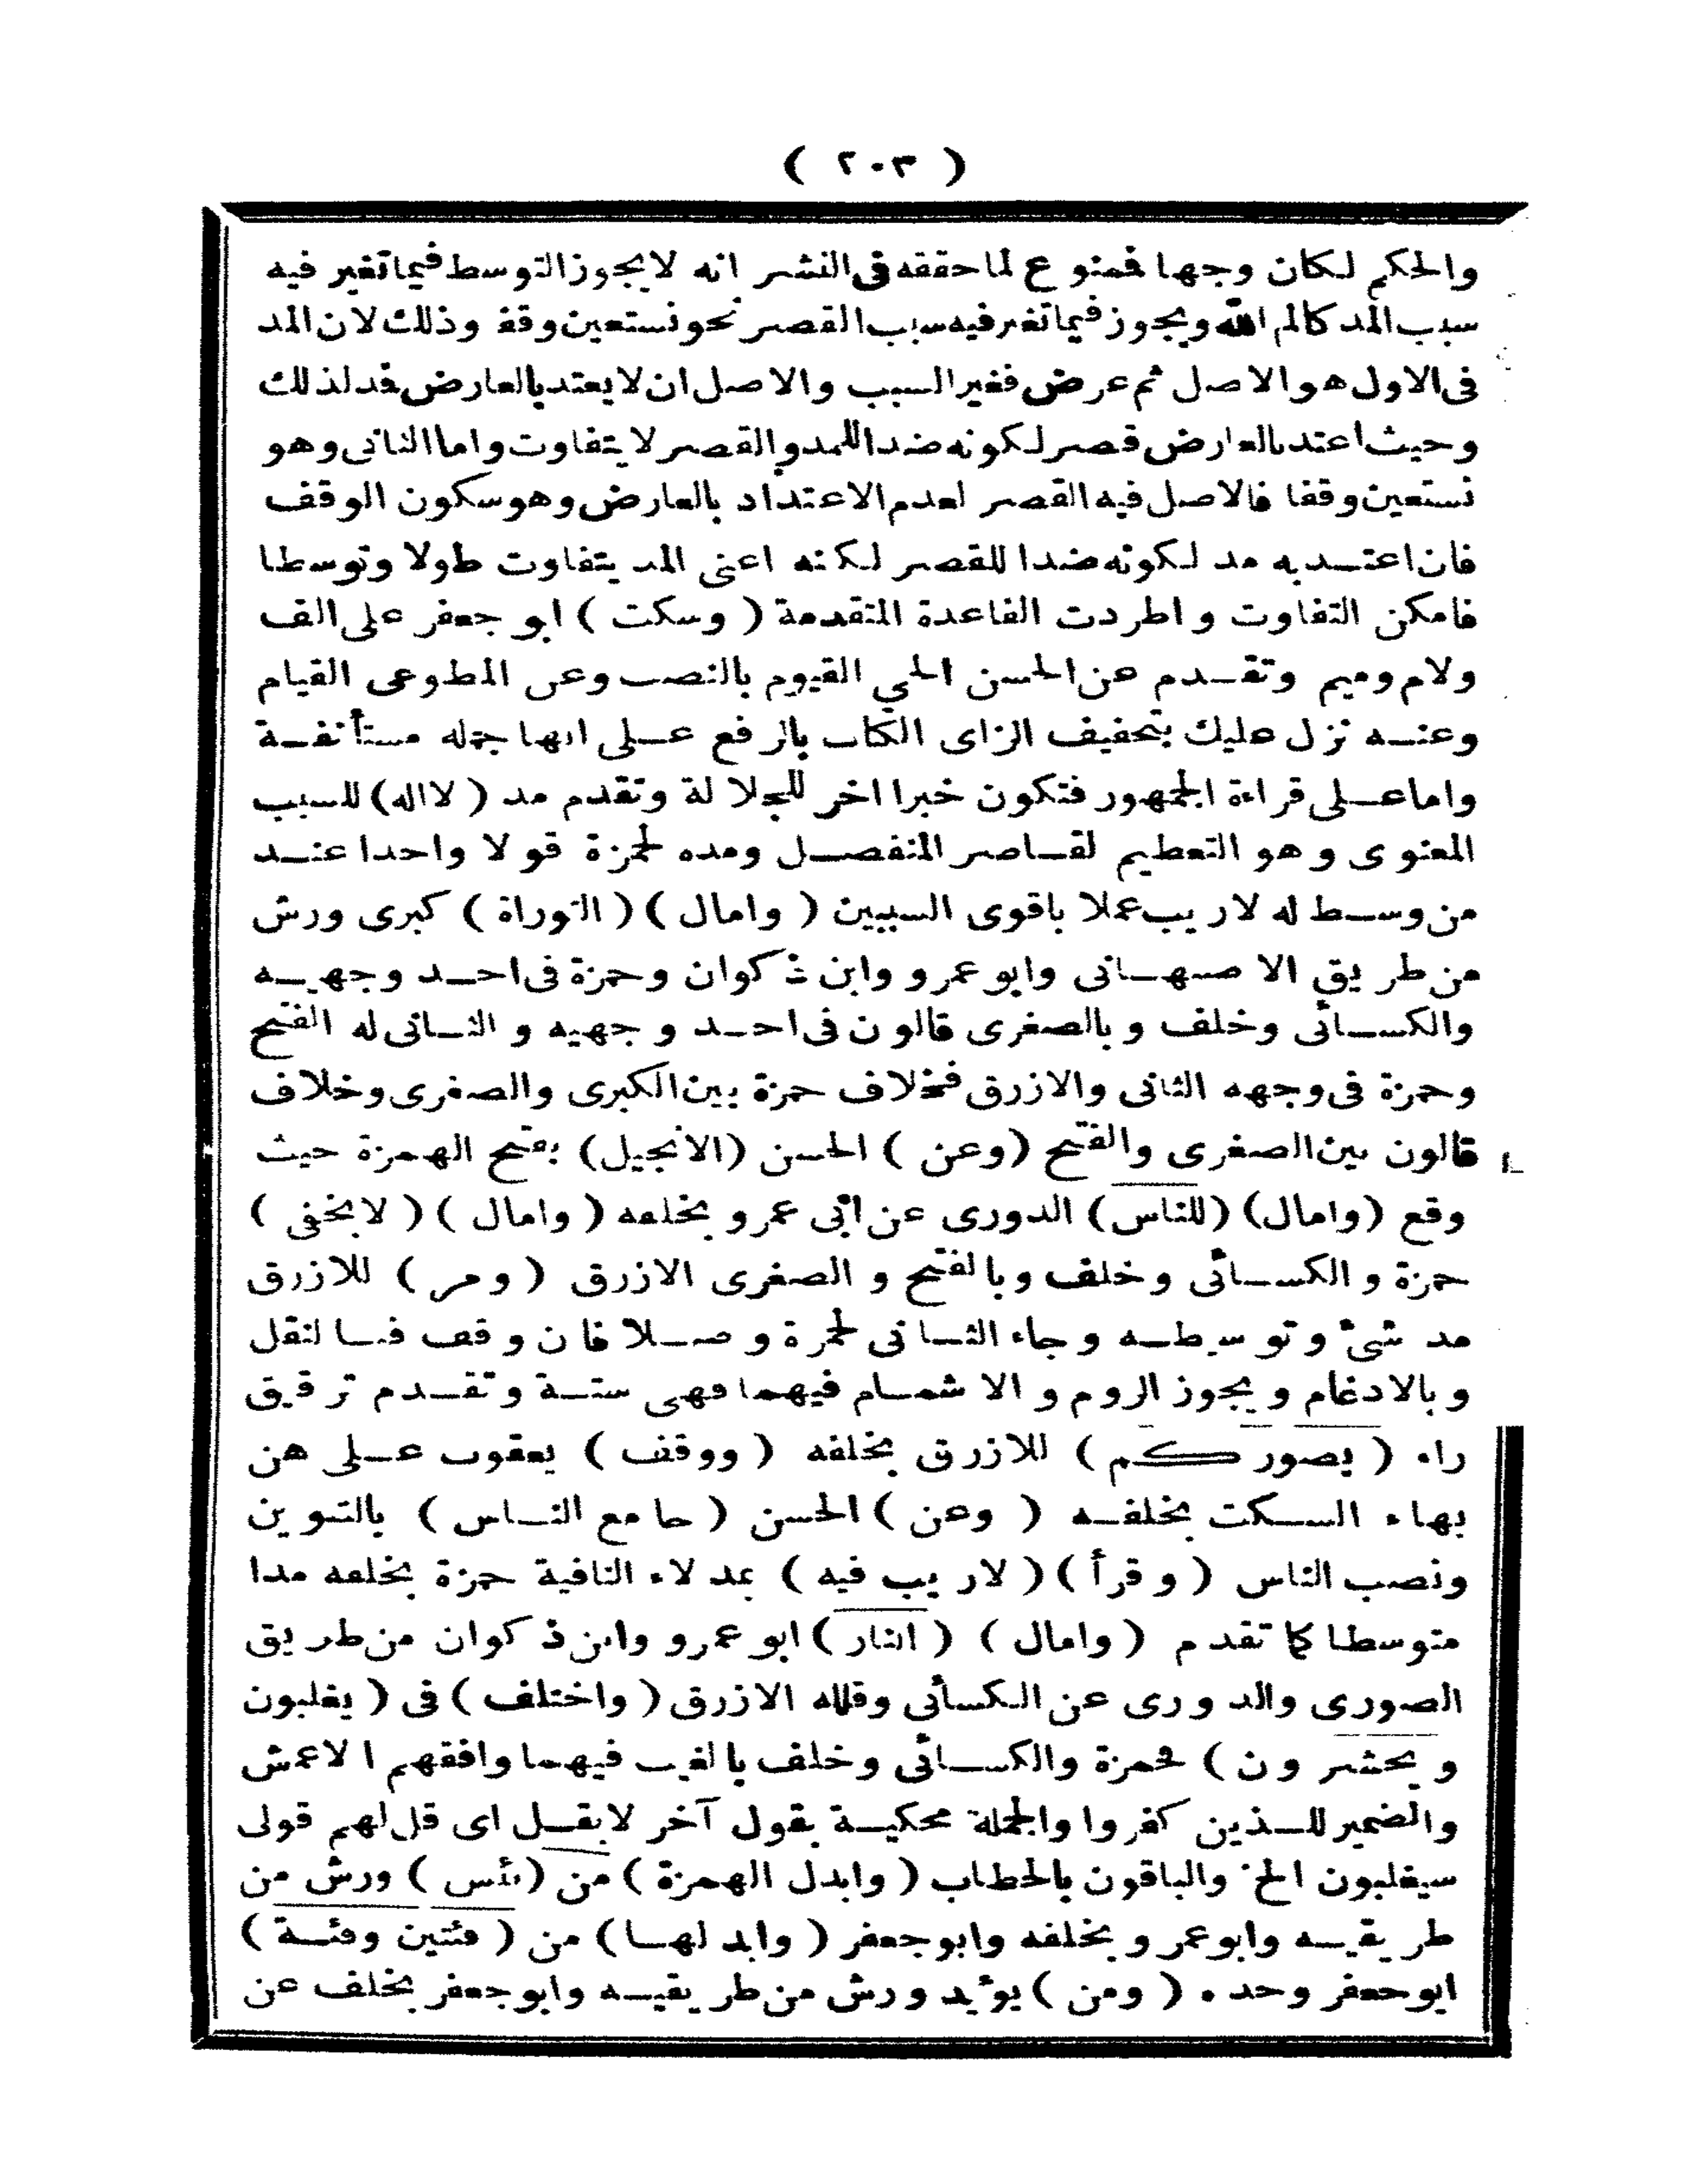 ( ٢٠٣ )
والحكم لكان وجها فممنوع لما حققه فى النشر انه لا يجوز التوسط فيما تغير فيه
سبب المد كالم الله ويجوز فيما تغير فيه سبب القصر نحو نستعين وقف وذلك لان المد
فى الاول هو الاصل ثم عرض فغير السبب والاصل ان لا يعتد بالعارض فمد لذلك
وحيث اعتد بالعارض قصر لكونه ضدا للمد والقصر لا يتفاوت واما الثانى وهو
نستعين وقفا فالاصل فيه القصر لعدم الاعتداد بالعارض وهو سكون الوقف
فان اعتد به مد لكونه ضدا للقصر لكنه اعنى المد يتفاوت طولا وتوسطا
فامكن التفاوت واطردت القاعدة المتقدمة ( وسكت ) ابو جعفر على الف
ولام وميم وتقدم عن الحسن الحي القيوم بالنصب وعن المطوعى القيام
وعنه نزل عليك بتخفيف الزاى الكاب بالرفع على انها جمله مستأنفة
واما على قراءة الجمهور فتكون خبرا اخر للجلالة وتقدم مد ( لااله ) للسبب
المعنوى وهو التعظيم لقاصر المنفصل ومده لحمزة قولا واحدا عند
من وسط له لاريب عملا باقوى السببين ( وامال ) ( التوراة ) كبرى ورش
من طريق الاصبهانى وابو عمرو وابن ذكوان وحمزة فى احد وجهيه
والكسائى وخلف وبالصغرى قالون فى احد وجهيه والثانى له الفتح
وحمزة فى وجهه الثانى والازرق فخلاف حمزة بين الكبرى والصغرى وخلاف
قالون بين الصغرى والفتح ( وعن ) الحسن ( الانجيل ) بفتح الهمزة حيث
وقع ( وامال ) ( للناس ) الدورى عن ابى عمرو بخلفه ( وامال ) ( لا يخفى )
حمزة والكسائى وخلف وبالفتح والصغرى الازرق ( ومر ) للازرق
مد شئ وتوسطه وجاء الثانى لحمزة وصلا فان وقف فبالنقل
وبالادغام ويجوز الروم والاشمام فيهما فهى ستة وتقدم ترقيق
راء ( يصوركم ) للازرق بخلفه ( ووقف ) يعقوب على هن
بهاء السكت بخلفه ( وعن ) الحسن ( جامع الناس ) بالتنوين
ونصب الناس ( وقرأ ) ( لاريب فيه ) بمد لاء النافية حمزة بخلفه مدا
متوسطا كما تقدم ( وامال ) ( النار ) ابو عمرو وابن ذكوان من طريق
الصورى والدورى عن الكسائى وقلله الازرق ( واختلف ) فى ( يغلبون
ويحشرون ) فحمزة والكسائى وخلف بالغيب فيهما وافقهم الاعمش
والضمير للذين كفروا والجملة محكية بقول آخر لا بقل اى قل لهم قولى
سيغلبون الخ والباقون بالخطاب ( وابدل الهمزة ) من ( بئس ) ورش من
طريقيه وابو عمرو بخلفه وابو جعفر ( وابدلها ) من ( فئتين وفئة )
ابو جعفر وحده ( ومن ) يؤيد ورش من طريقيه وابو جعفر بخلف عن